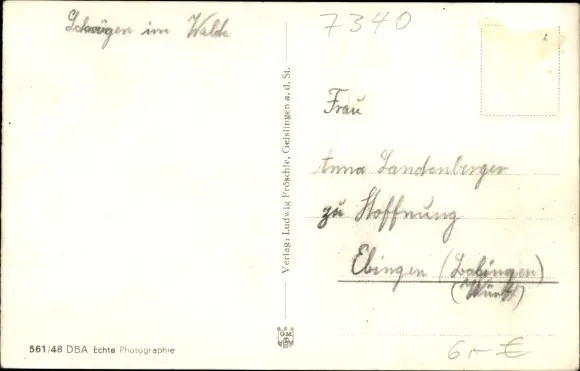 im Walde
7340
Verlag: Ludwig Fröschle, Geislingen a. d. St.
Frau
Anna Landenberger
zu Hoffnung
Ebingen (Balingen)
(Württ)
561/48 DBA Echte Photographie
6,- €